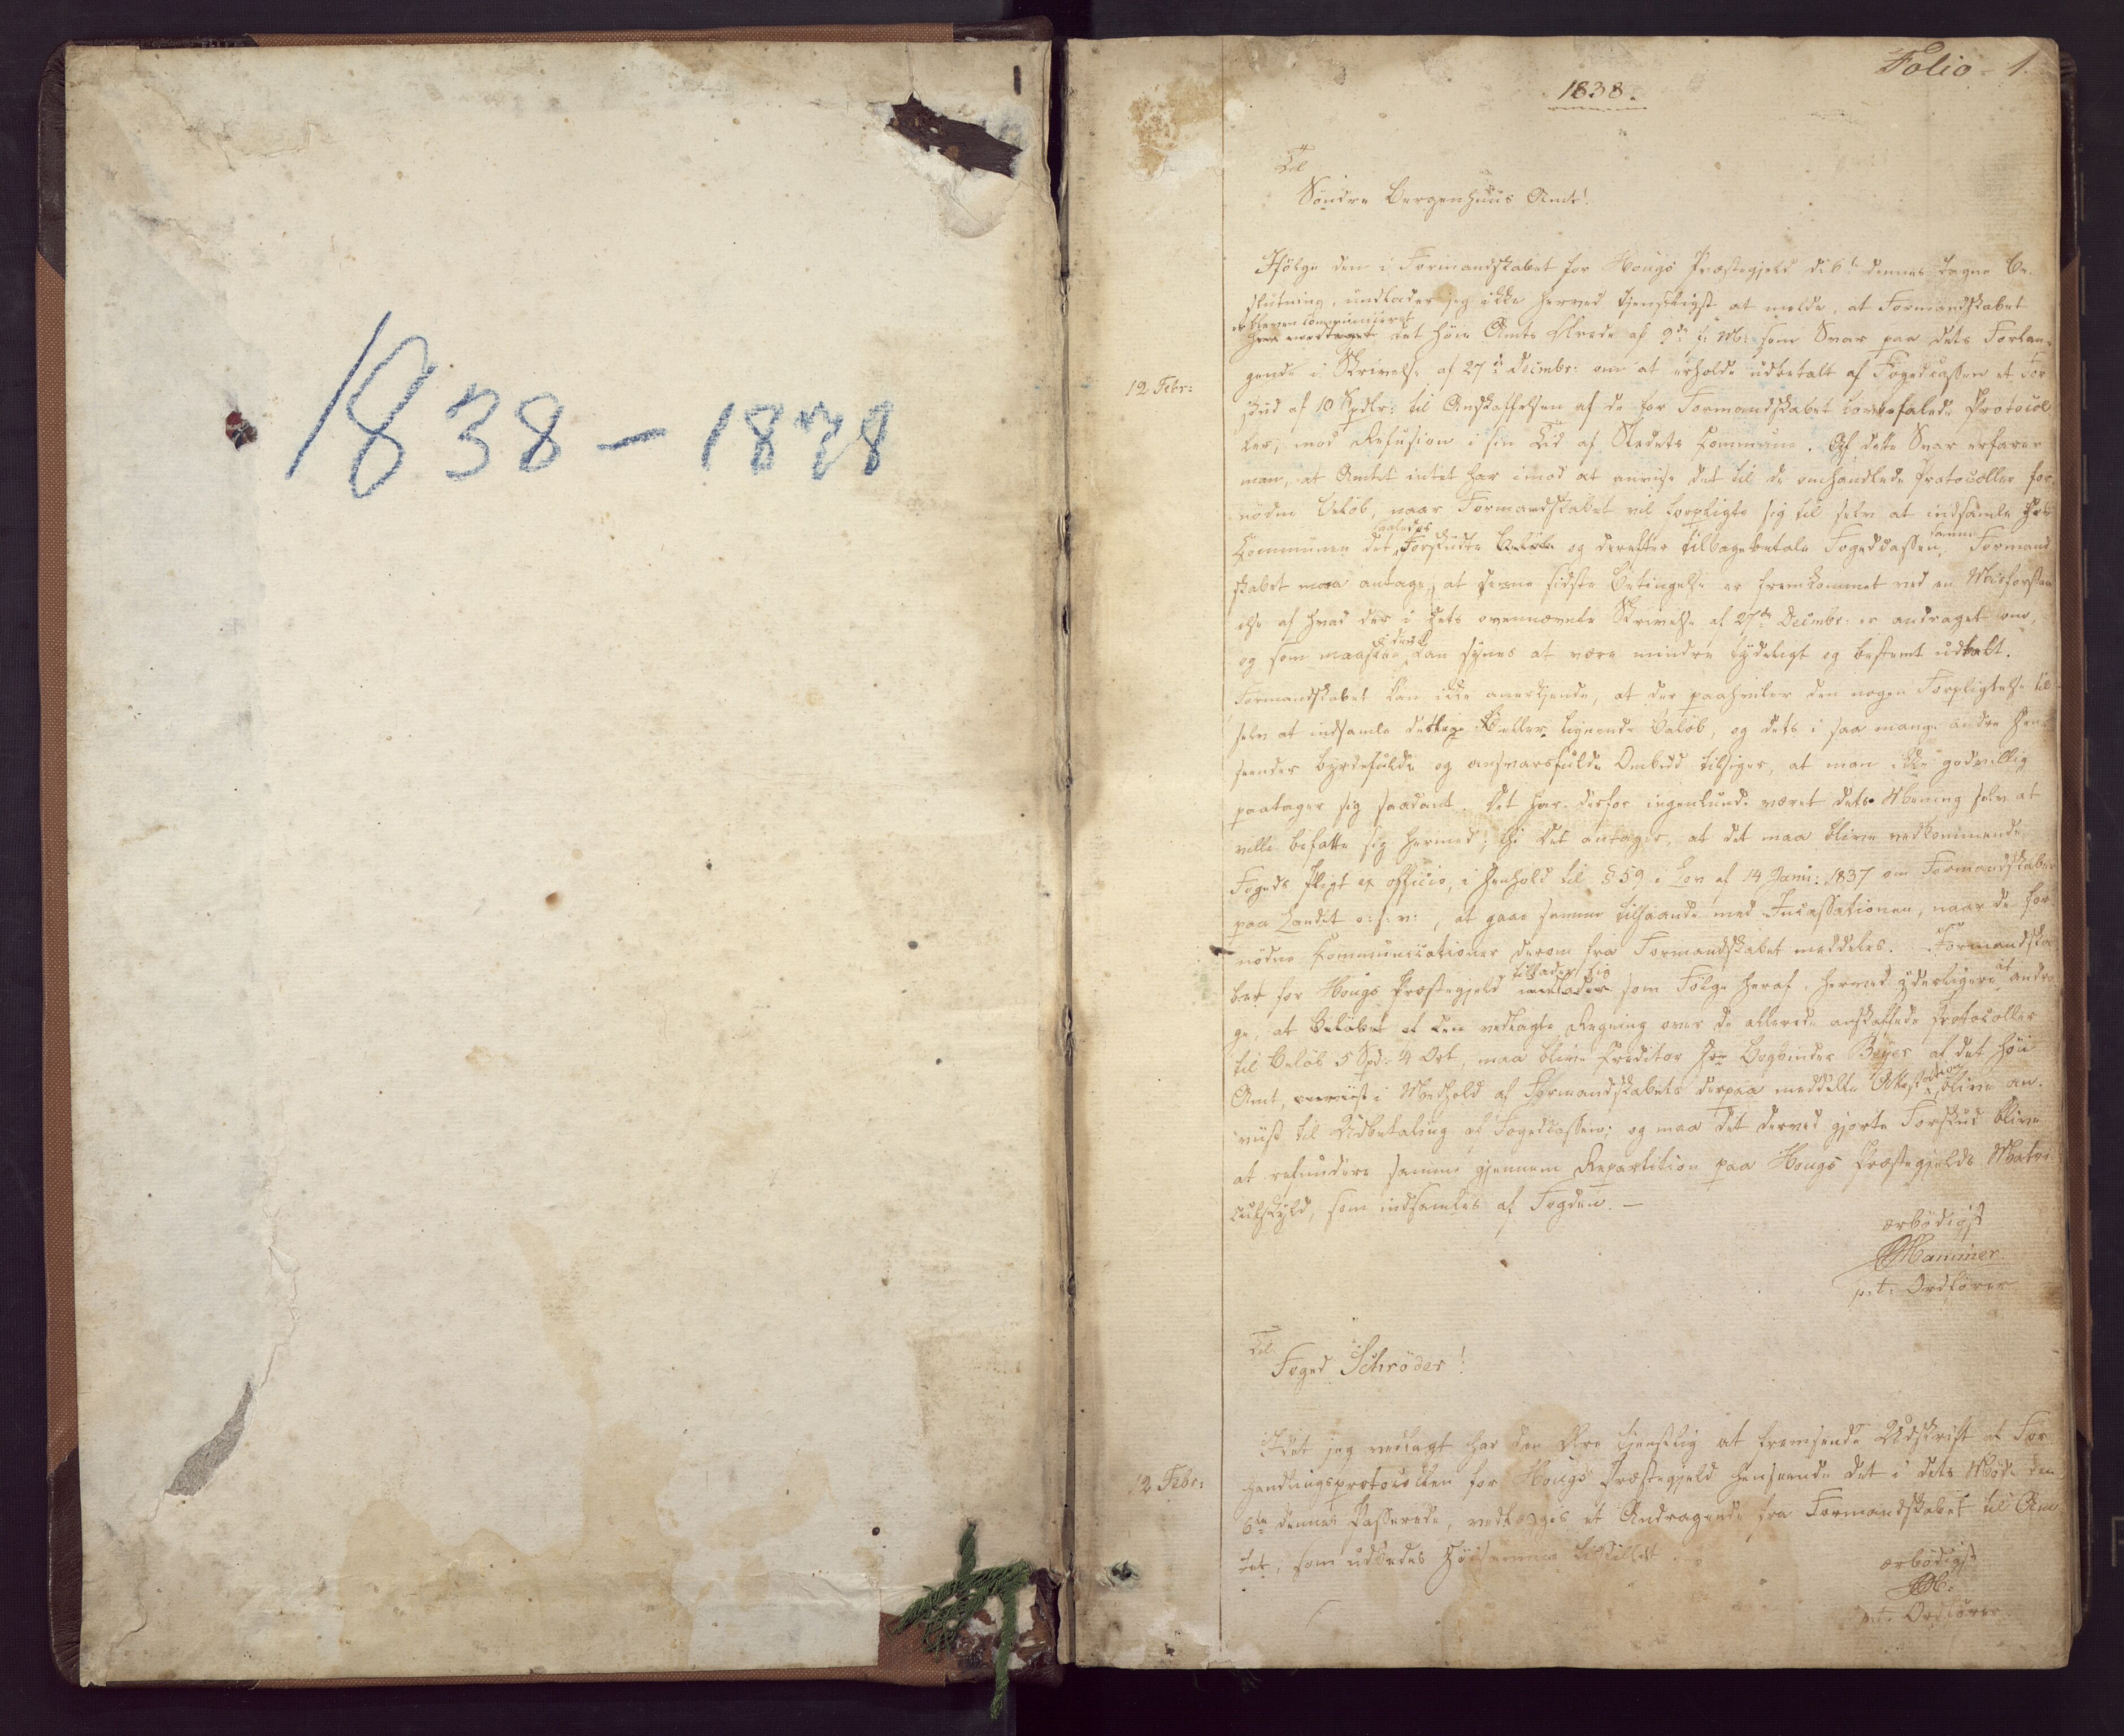 1838-1878
Folio - 1.
1838.
Til
Søndre Bergenhuus Amt!
Ifølge den i Formandskabet for Hougs Præstegjeld d: 6t dennes tagne Be-
slutning, undlader jeg ikke herved tjenstligst at melde, at Formandskabet
er bleven communiceret
har modtaget det høie Amts Ærede af 9de f: M: som Svar paa dets Forlan-
12 Febr:
gende i Skrivelse af 27de Decembr: om at erholde udbetalt af Fogedcassen et For
skud af 10 Spdlr: til Anskaffelsen af de for Formandskabet anbefalede Protocol
ler, mod Refusion i sin Tid af Stedets Commune. Af dette Svar erfarer
man, at Amtet intet har imod at anvise det til de omhandlede Protocoller for-
nødne Beløb, naar Formandskabet vil forpligte sig til selv at indsamle hos
saaledes
samme
Communen det Forskudte Beløb og derefter tilbagebetale Fogedcassen. Formand
skabet maa antage, at denne sidste Betingelse er fremkommet ved en Misforstaa
else af hvad der i dets ovennævnte Skrivelse af 27de Decembr: er andraget om,
og som maaskee kan synes at være mindre tydeligt og bestemt udtalt.
Formandskabet kan ikke anerkjende, at der paahviler den nogen Forpligtelse til
selv at indsamle dette eller lignende Beløb, og dets i saa mange andre Hen-
seender byrdefulde og ansvarsfulde Ombud tilsiger, at man ikke godvillig
paatager sig saadant. Det har derfor ingenlunde været dets Mening selv at
ville befatte sig hermed; thi det antager, at det maa blive vedkommende
Fogeds Pligt ex officio, i Henhold til § 59 i Lov af 14 Janu: 1837 om Formandskaber
paa Landet o: s: v:, at gaae samme tilhaande med Incassationen, naar de for
nødne Communicationer derom fra Formandskabet meddeles. Formandska
tillader sig
at
bet for Hougs Præstegjeld undlader som Følge heraf, herved yderligere andra
ge, at Beløbet af den vedlagte Regning over de allerede anskaffede Protocoller
til Beløb 5 Spd: 4 Ort, maa blive Creditor Hr Bogbinder Beyer af det høie
Amt, anviist i Medhold af Formandskabets derpaa meddelte Attestation, blive an-
viist til Udbetaling af Fogedcassen; og maa det derved gjorte Forskud blive
at refundere samme gjennem Repartition paa Hougs Præstegjelds Matri
culskyld, som indsamles af Fogden. —
ærbødigst
Hammer
p: t: Ordfører
Til
Foged Schrøder!
Idet jeg vedlagt har den Ære tjenstlig at fremsende Udskrift af For
handlingsprotocollen for Hougs Præstegjeld henseende det i dets Møde den
12 Febr:
6te dennes Passerede, vedlægges et Andragende fra Formandskabet til Am
tet, som udbedes Høisamme tilstillet
ærbødigst
H:
p: t: Ordfører